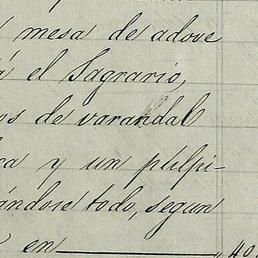 mesa de adove
el Sagrario,
os de varandal
ca y un púlpi-
ándose todo, segun
en 40